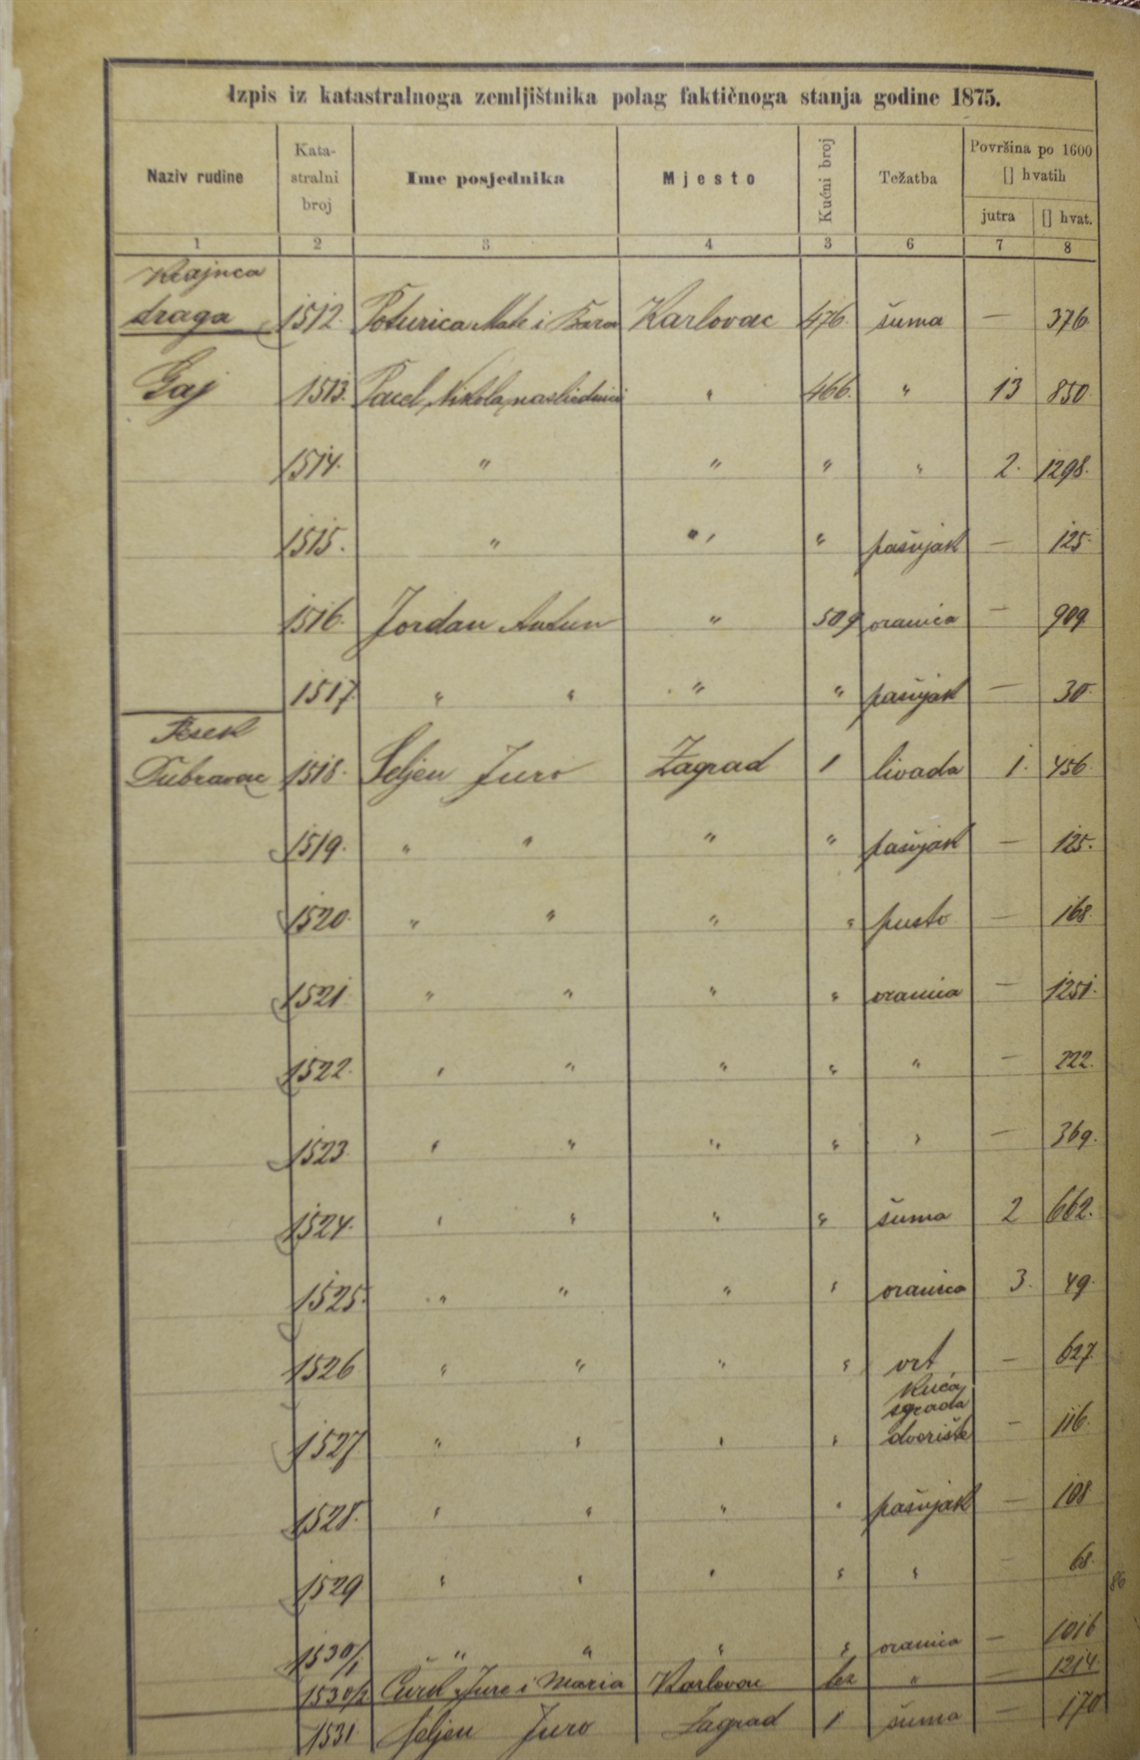 Izpis iz katastralnoga zemljištnika polag faktičnoga stanja godine 1875.
Naziv rudine Kata-stralni broj Ime posjednika Mjesto Kućni broj Težatba Površina po 1600 [] hvatih jutra [] hvat.
1 2 3 4 3 6 7 8
Krajnca
draga 1512. Poturica Mate i Bara Karlovac 476. šuma — 376
Gaj 1513. Nikola, nasliednici " 466. " 13 850
1514. " " " " 2. 1298.
1515. " " " pašnjak — 125.
1516. Jordan Antun " 509 oranica — 909
1517. " " " " pašnjak — 30.
Dubravac 1518. Seljen Juro Zagrad 1 livada 1. 456
1519. " " " " pašnjak — 125.
1520. " " " " pusto — 168.
1521 " " " " oranica — 1251.
1522. " " " " " — 222.
1523 " " " " " — 369.
1524. " " " " šuma 2 662.
1525. " " " " oranica 3. 49.
1526 " " " " vrt — 627.
kuća
sgrada
1527 " " " " dvorište — 116.
1528. " " " " pašnjak — 108
1529 " " " " " — 68.
86
1530/1 " " " " oranica — 1016
1530/2 Juro i Maria Karlovac bez " — 1214.
1531 Seljen Juro Zagrad 1 šuma — 170